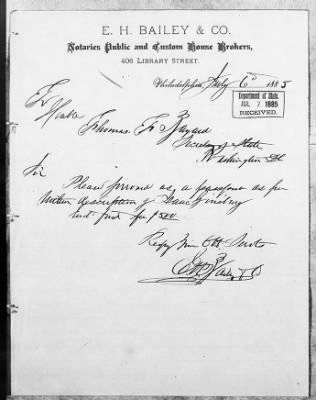 E. H. BAILEY & CO.
Notaries Public and Custom House Brokers,
406 LIBRARY STREET.
Philadelphia, July 6th 1885
Department of State,
JUL 7 1885
RECEIVED.
To
Honble
Thomas F Bayard
Secretary of State
Washington DC
Sir
Please forward us a passport as per
within description of Isaac Ginsburg
and find fee
Respy Your Obt Servts
E H Bailey & Co